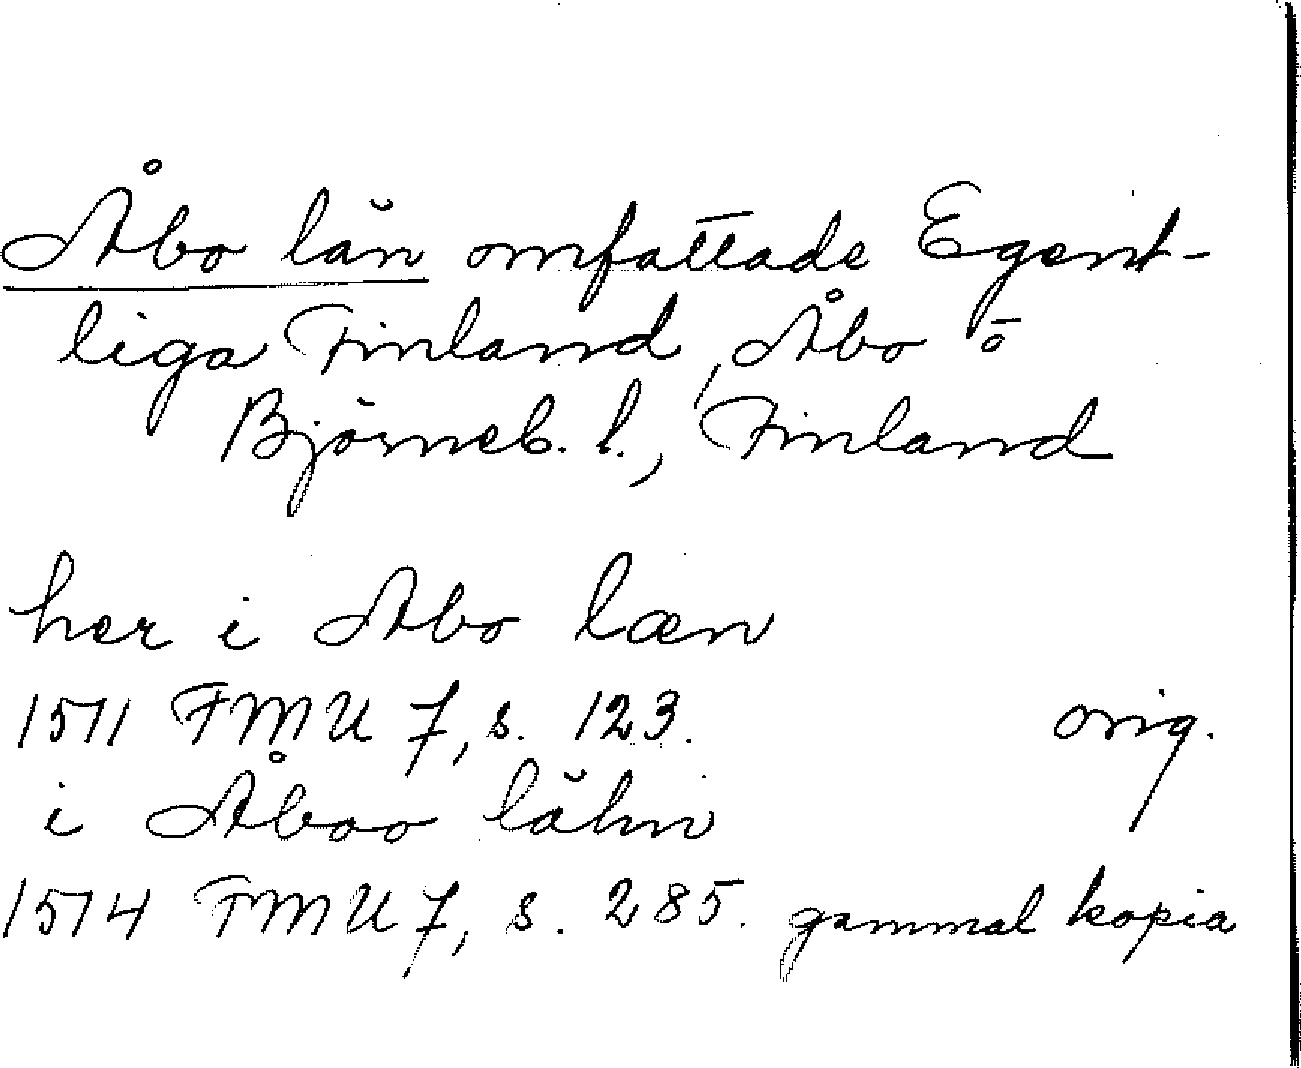 Åbo län omfattade Egent-
liga Finland, Åbo o
Björneb. l., Finland
her i Abo læn
1511 FMU 7, s. 123. orig.
i Åboo lähn
1514 FMU 7, s. 285. gammal kopia